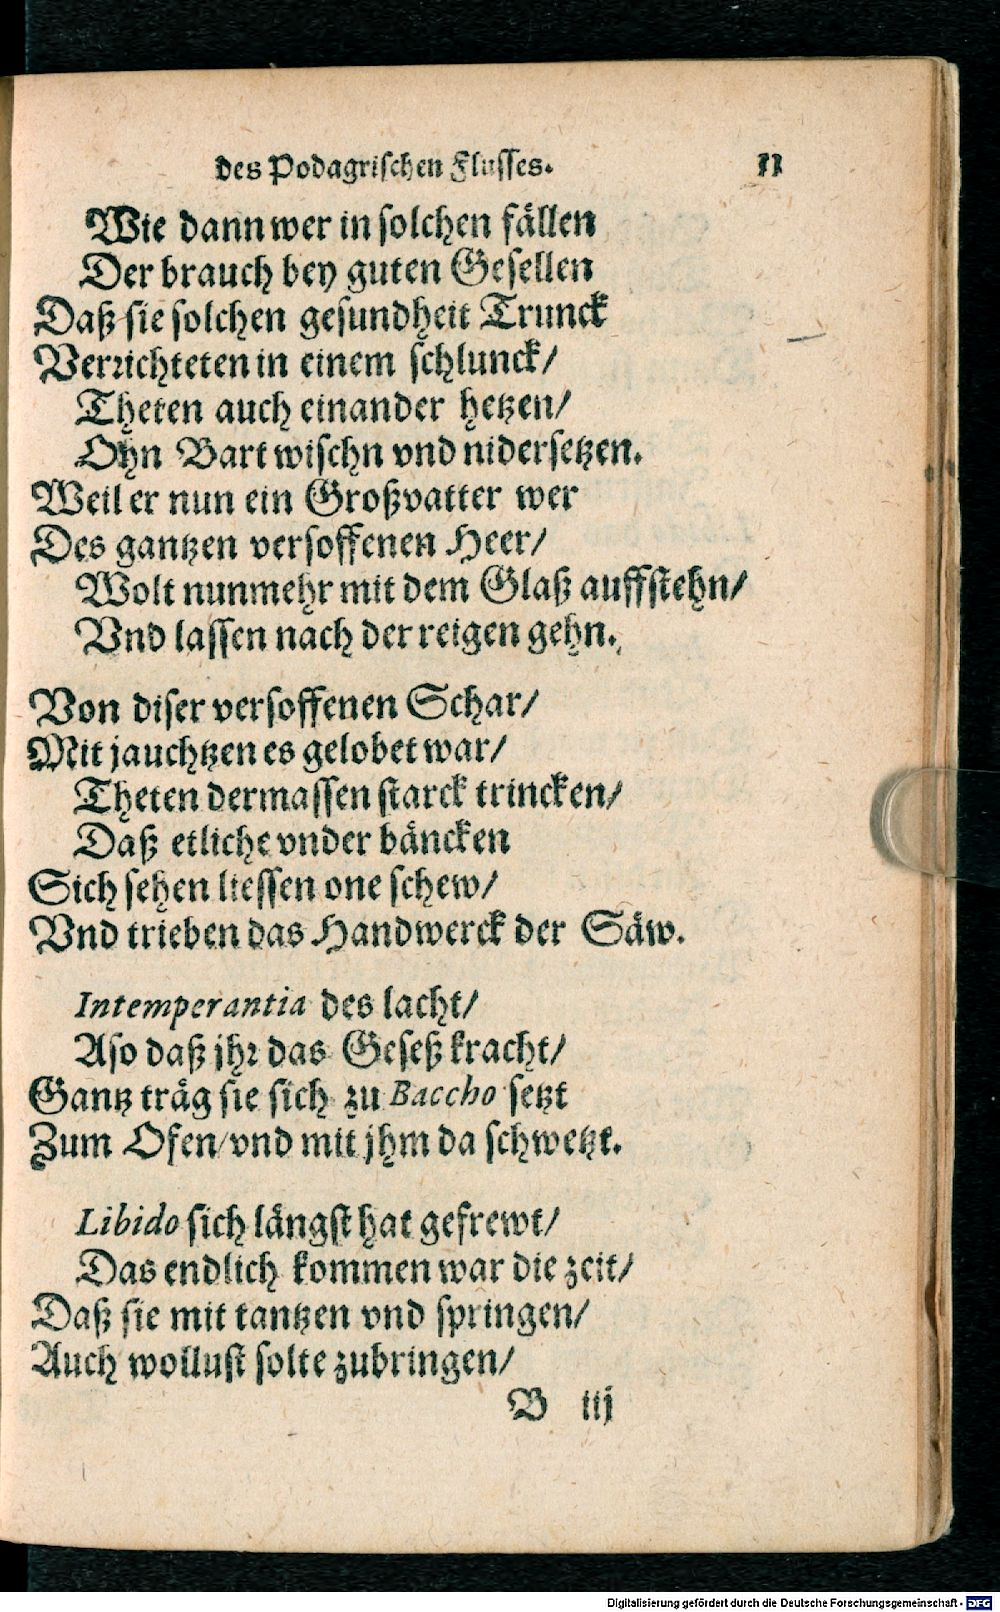 des Podagrischen Flusses. 11
Wie dann wer in solchen fällen
Der brauch bey guten Gesellen
Daß sie solchen gesundheit Trunck
Verrichteten in einem schlunck/
Theten auch einander hetzen/
Ohn Bart wischn vnd nidersetzen.
Weil er nun ein Großvatter wer
Des gantzen versoffenen Heer/
Wolt nunmehr mit dem Glaß auffstehn/
Vnd lassen nach der reigen gehn.
Von diser versoffenen Schar/
Mit jauchtzen es gelobet war/
Theten dermassen starck trincken/
Daß etliche vnder bäncken
Sich sehen liessen one schew/
Vnd trieben das Handwerck der Säw.
Intemperantia des lacht/
Aso daß jhr das Geseß kracht/
Gantz träg sie sich zu Baccho setzt
Zum Ofen/vnd mit jhm da schwetzt.
Libido sich längst hat gefrewt/
Das endlich kommen war die zeit/
Daß sie mit tantzen vnd springen/
Auch wollust solte zubringen/
B iij
Digitalisierung gefördert durch die Deutsche Forschungsgemeinschaft - DFG